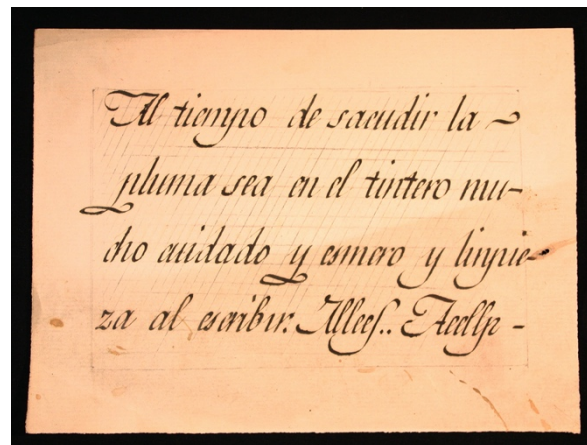 Al tiempo de sacudir la
pluma sea en el tintero mu-
cho cuidado y esmero y limpie-
za al escribir.